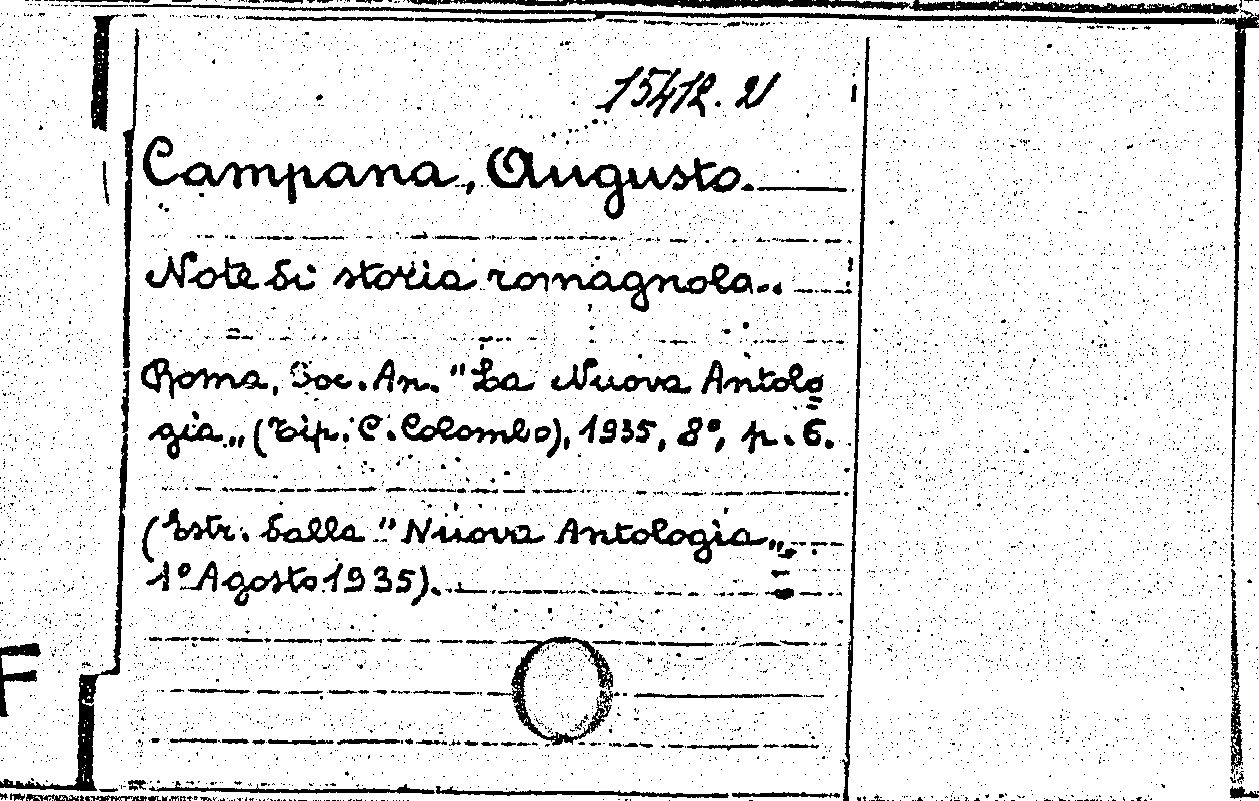 15412. 21
Campana, Augusto.
Note di storia romagnola..
Roma, Soc. An. "La Nuova Antolo
gia„ (Tip. C. Colombo), 1935, 8°, p. 6.
(Estr. dalla "Nuova Antologia„,
1° Agosto 1935).
F